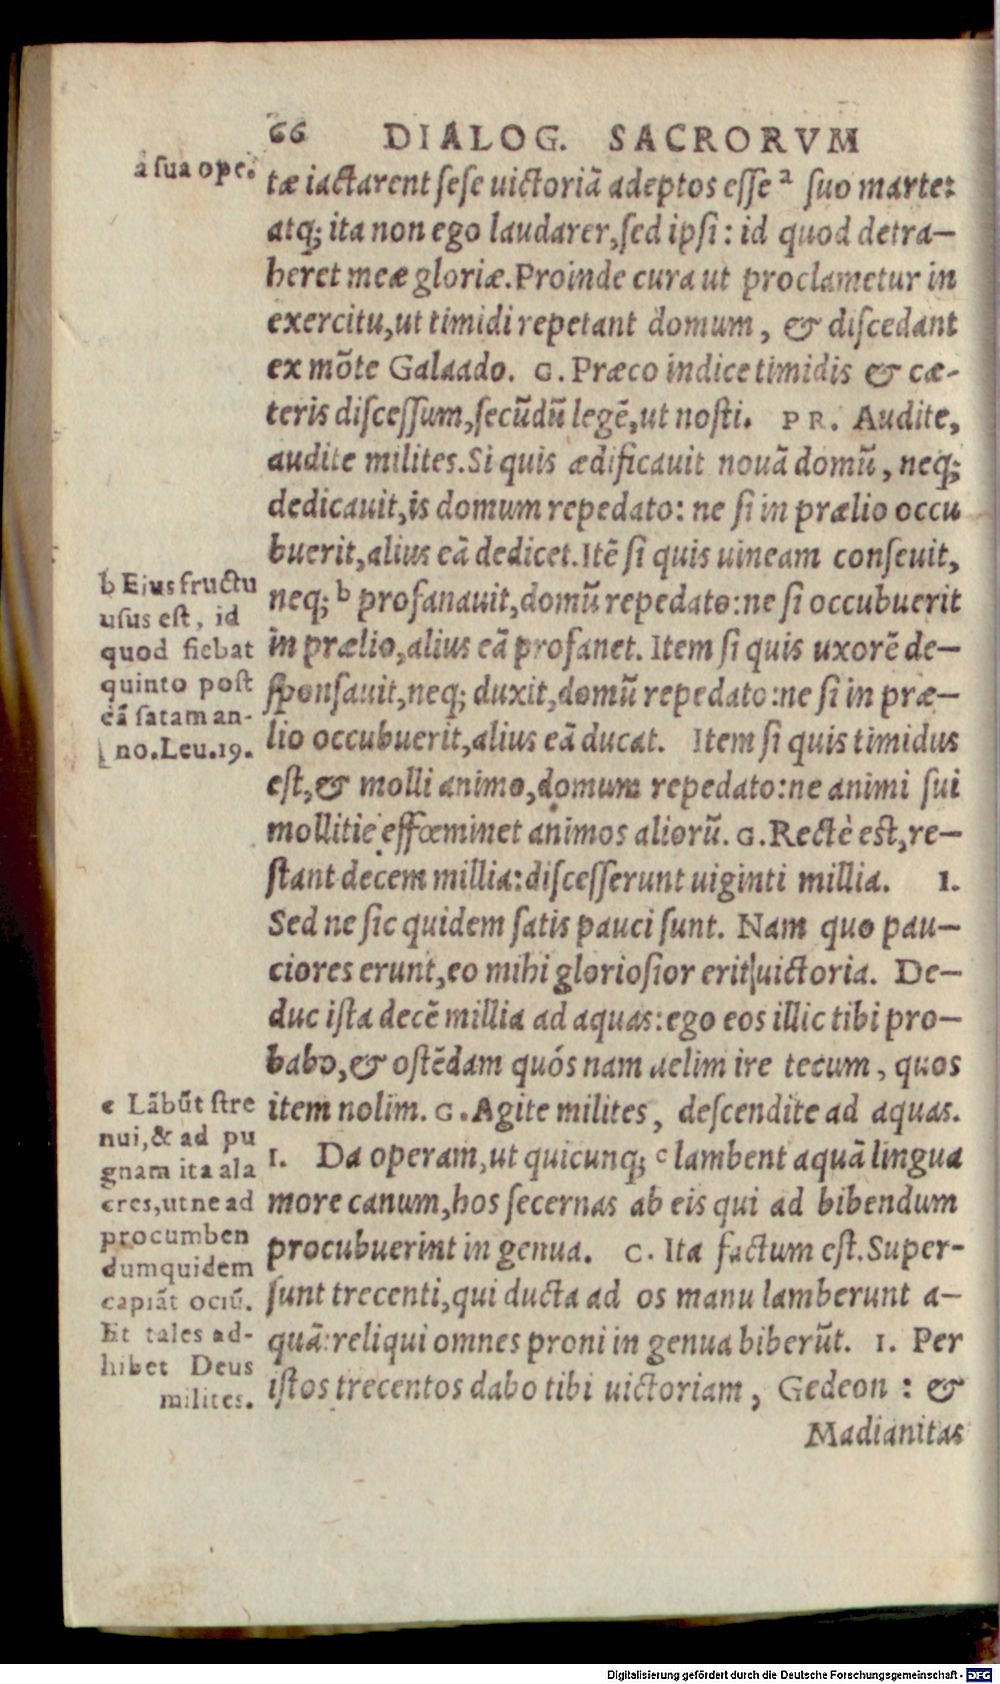 66 DIALOG. SACRORVM
a sua ope.
tæ iactarent sese uictoriã adeptos esse ª suo marte:
atq; ita non ego laudarer, sed ipsi: id quod detra-
heret meæ gloriæ. Proinde cura ut proclametur in
exercitu, ut timidi repetant domum, & discedant
ex mõte Galaado. G. Præco indice timidis & cæ-
teris discessum, secũdũ legẽ, ut nosti. PR. Audite,
audite milites. Si quis ædificauit nouã domũ, neq;
dedicauit, is domum repedato: ne si in prælio occu
buerit, alius eã dedicet. Itẽ si quis uineam conseuit,
neq; ᵇ profanauit, domũ repedato: ne si occubuerit
in prælio, alius eã profanet. Item si quis uxorẽ de-
sponsauit, neq; duxit, domũ repedato: ne si in præ-
lio occubuerit, alius eã ducat. Item si quis timidus
est, & molli animo, domum repedato: ne animi sui
mollitie effœminet animos aliorũ. G. Rectè est, re-
stant decem millia: discesserunt uiginti millia. I.
Sed ne sic quidem satis pauci sunt. Nam quo pau-
ciores erunt, eo mihi gloriosior erit uictoria. De-
duc ista decẽ millia ad aquas: ego eos illic tibi pro-
babo, & ostẽdam quós nam uelim ire tecum, quos
item nolim. G. Agite milites, descendite ad aquas.
I. Da operam, ut quicunq; ᶜ lambent aquã lingua
more canum, hos secernas ab eis qui ad bibendum
procubuerint in genua. G. Ita factum est. Super-
sunt trecenti, qui ducta ad os manu lamberunt a-
quã: reliqui omnes proni in genua biberũt. I. Per
istos trecentos dabo tibi uictoriam, Gedeon: &
Madianitas
b Ejus fructu
usus est, id
quod fiebat
quinto post
eã satam an-
no. Leu. 19.
c Lãbũt stre
nui, & ad pu
gnam ita ala
cres, ut ne ad
procumben
dum quidem
capiãt ociũ.
Et tales ad-
hibet Deus
milites.
Digitalisierung gefördert durch die Deutsche Forschungsgemeinschaft - DFG